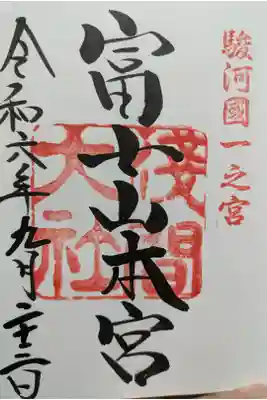 駿河國一之宮
富士山本宮
淺間
大社
令和六年九月 日